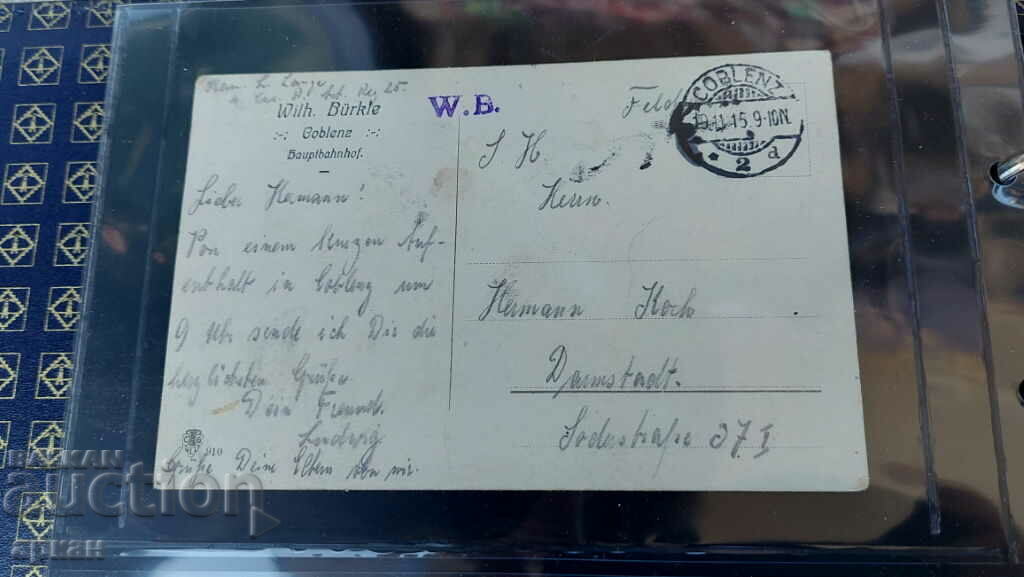 Wilh. Bürkle
Coblenz
Hauptbahnhof.
W.B.
COBLENZ
19.11.15.9-10N.
* 2 d
S H
Herrn.
Hermann Koch
Darmstadt.
Soderstraße 37 I
Lieber Hermann!
Von einem kurzen Auf-
enthalt in Coblenz um
9 Uhr sende ich Dir die
herzlichsten Grüße
Dein Freund.
Ludwig
Grüße Deine Eltern von mir.
910
БАЛКАН
auction
аукцион